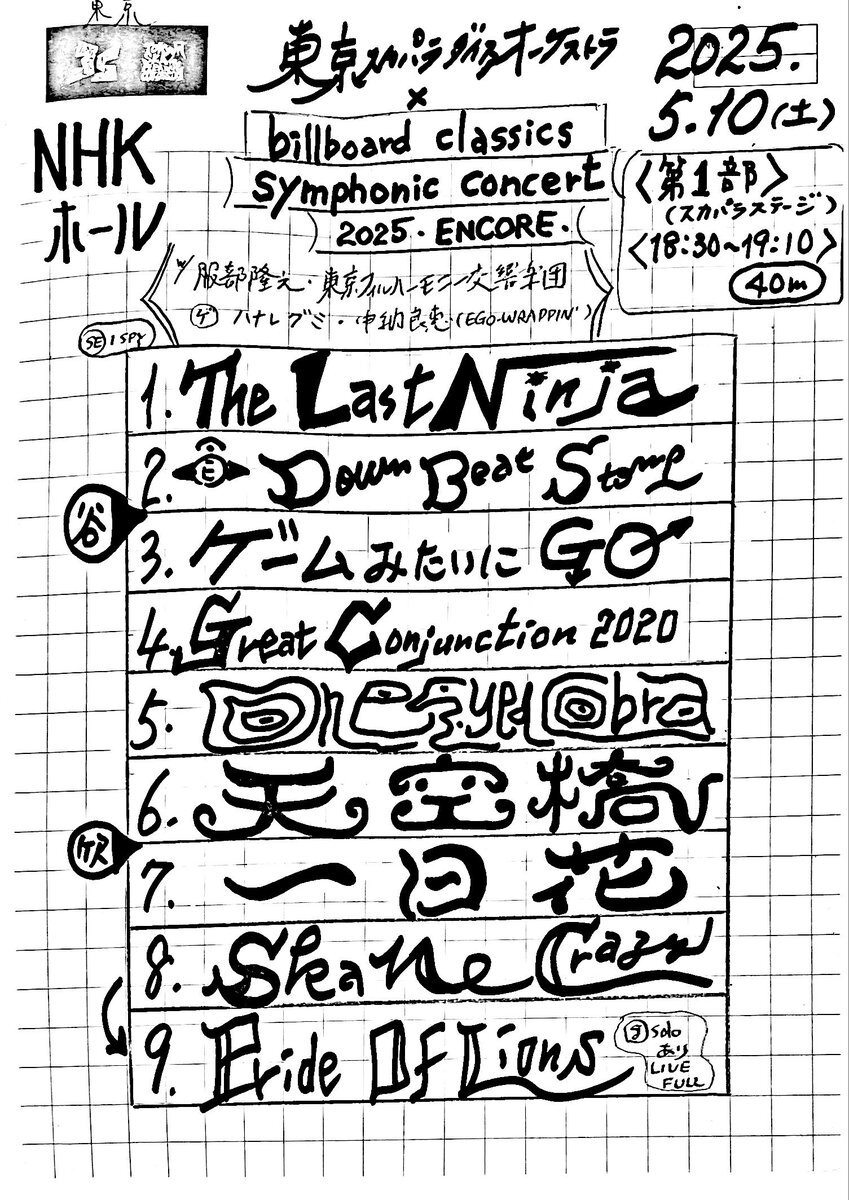 東京
東京スカパラダイスオーケストラ
×
2025.
5.10(土)
NHK
ホール
billboard classics
symphonic concert
2025・ENCORE・
〈第1部〉
(スカパラステージ)
〈18:30~19:10〉
40m
w/服部隆之・東京フィルハーモニー交響楽団
ゲ ハナレグミ・中納良恵(EGO-WRAPPIN')
SE I SPY
1. The Last Ninja
2. ヒ Down Beat Stomp
谷
3. ゲームみたいにGO
4. Great Conjunction 2020
5. One Eyed Cobra
6. 天空橋
欣
7. 一日花
8. Ska Me Crazy
9. Pride Of Lions
solo
あり
LIVE
FULL